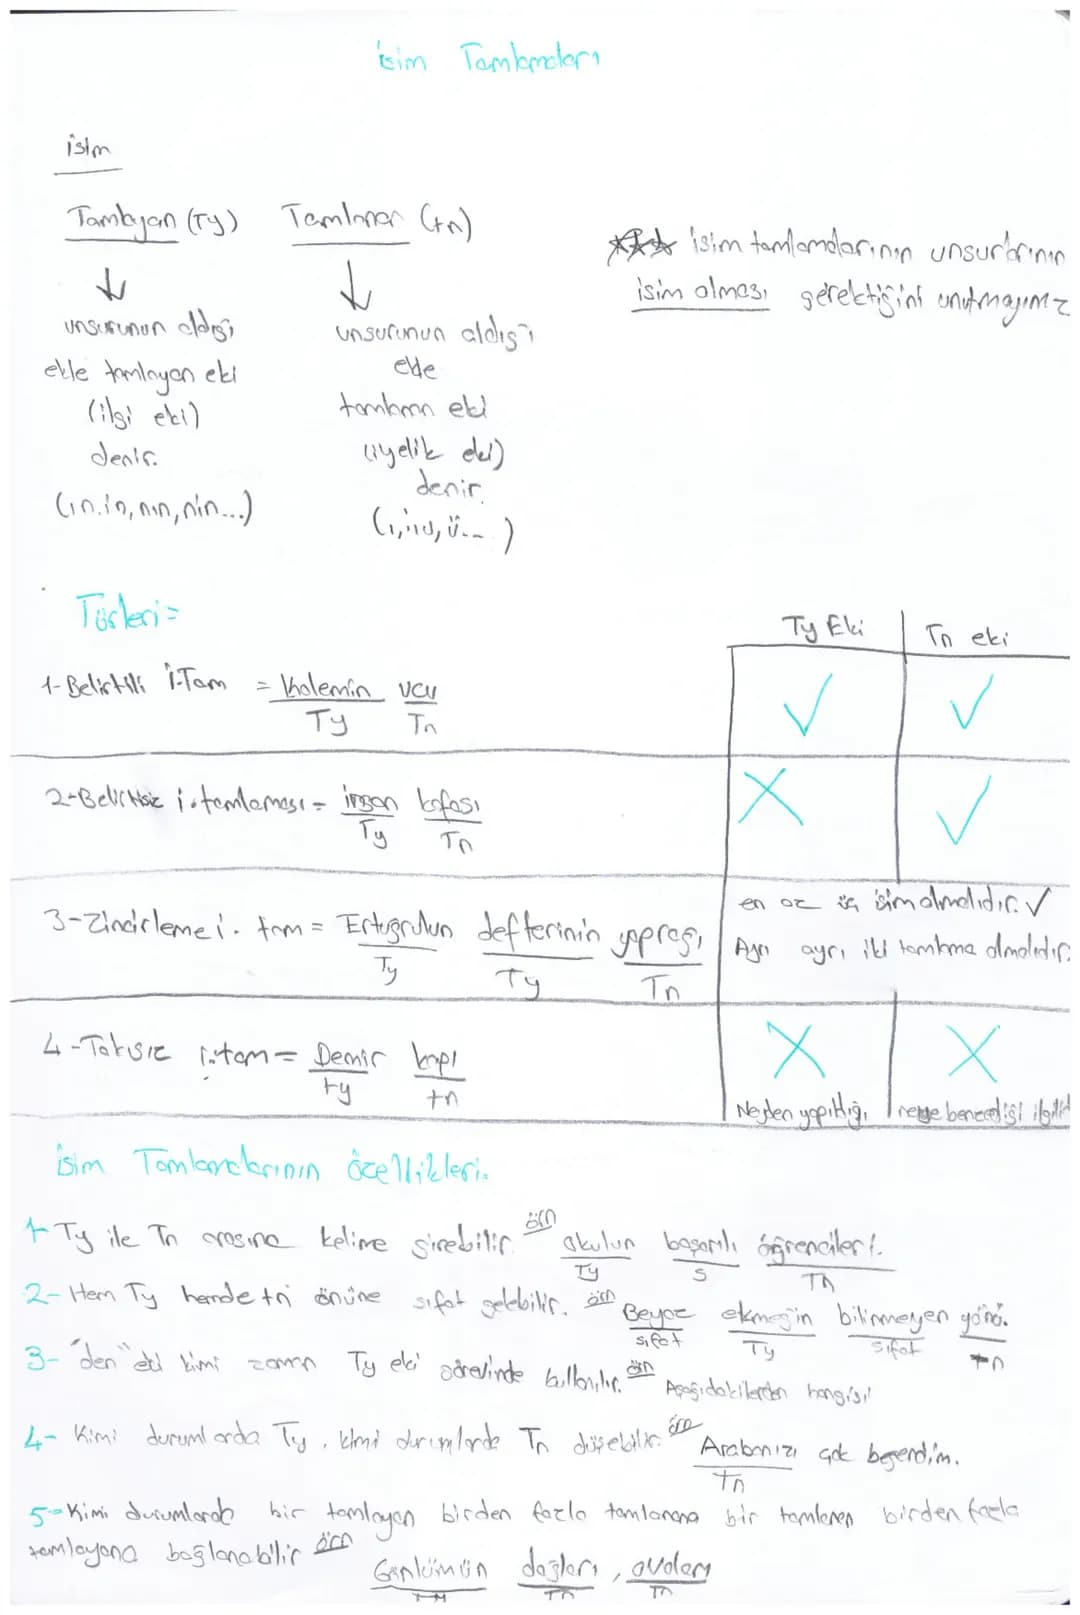 isim Tamlamaları
isim
Tamlayan (Ty)
↓
unsurunun aldığı
ekle tamlayan eki
(ilgi eki)
denir.
(ın, in, nın, nin...)
Tamlanan (tn)
↓
unsurunun aldığı
ekde
tamlanan eki
(iyelik eki)
denir.
(ı, i, u, ü... )
isim tamlamalarının unsurlarının
isim olması gerektiğini unutmayınız
Türleri=
Ty Eki Tn eki
1-Belirtili İ.Tam = Kalemin ucu ✓ ✓
Ty Tn
2-Belirtisiz i.tamlaması = insan kafası X ✓
Ty Tn
3-Zincirleme i. tam = Ertuğrulun defterinin yaprağı
Ty Ty Tn
en az üç isim olmalıdır. ✓
Ayrı ayrı iki tamlama olmalıdır.
4-Takısız i.tam = Demir kapı X X
ty tn
Neyden yapıldığı, neye benzediği ilgili
isim Tamlamalarının özellikleri.
1- Ty ile Tn arasına kelime girebilir. örn okulun başarılı öğrencileri.
Ty S Tn
2- Hem Ty hemde tn önüne sıfat gelebilir. örn Beyaz ekmeğin bilinmeyen yönü.
sıfat Ty sıfat tn
3- "den" eki kimi zaman Ty eki görevinde kullanılır. örn Aşağıdakilerden hangisi
4- Kimi durumlarda Ty, kimi durumlarda Tn düşebilir. örn Arabanızı çok beğendim.
Tn
5- Kimi durumlarda bir tamlayan birden fazla tamlanana bir tamlanen birden fazla
tamlayana bağlanabilir örn
dağları, ovaları
Tn Tn